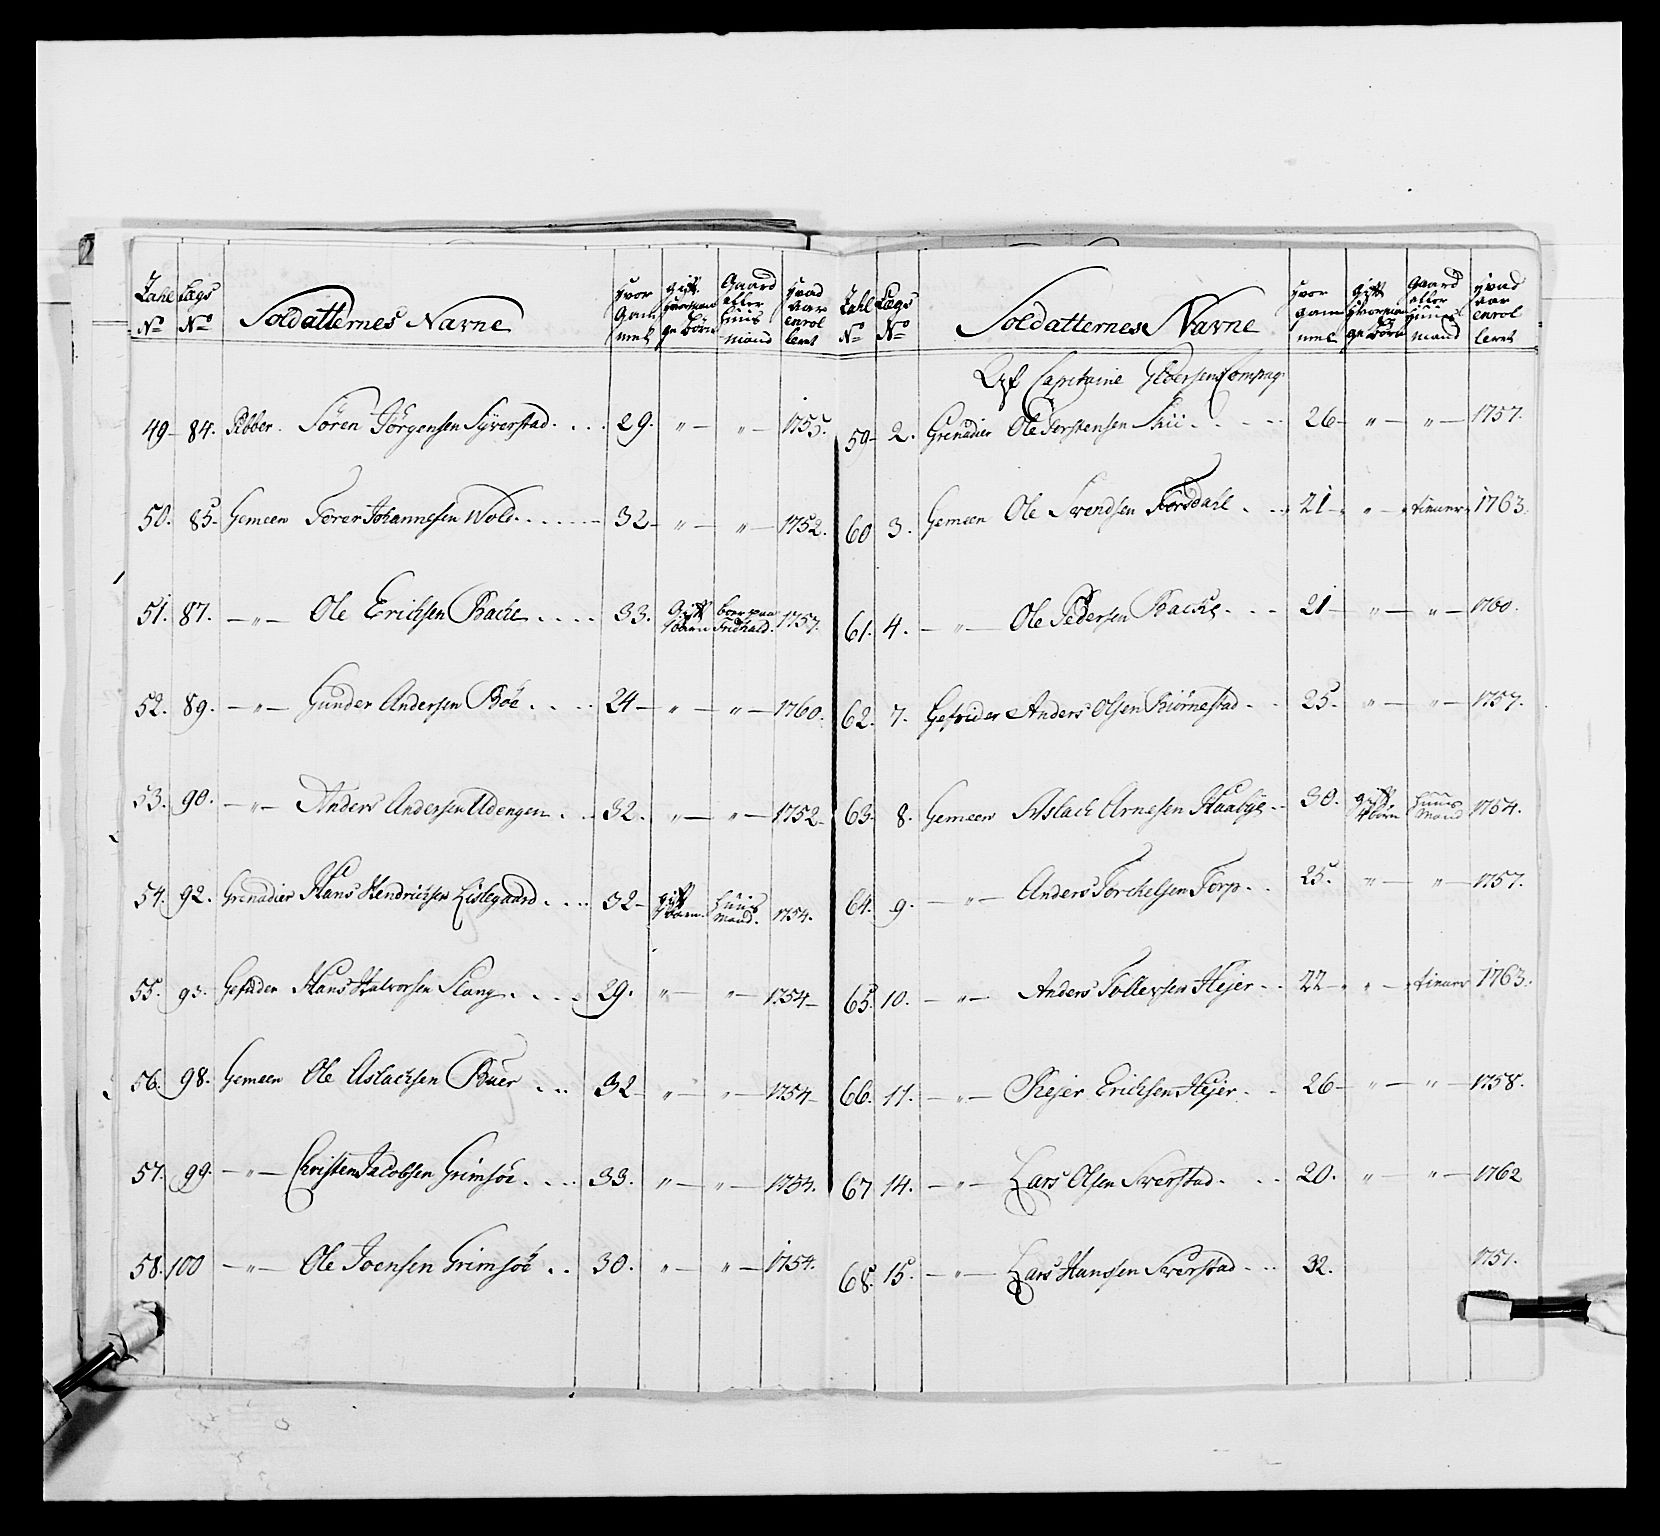 Zahl No | Lægs No | Soldatternes Navne | Hvor Gammel | Gift hvormange Börn | Gaard eller Huusmand | Hvad Aar enrolleret
49 | 84. | Pibber. Sören Jörgensen Syverstad | 29. | „ | „ | 1755.
50. | 85. | Gemeen Torer Johannesen Wold | 32 | „ | „ | 1752.
51. | 87. | „ Ole Erichsen Bache | 33. | Gift 1 barn | boer paa Fridhald. | 1757.
52. | 89. | „ Gunder Andersen Böe | 24 | „ | „ | 1760.
53. | 90. | „ Anders Andersen Udengen | 32. | „ | „ | 1752
54. | 92. | Grenadier Hans Hendrichsen Lislegaard | 32 | gift 1 barn. | huus mand. | 1754.
55. | 93. | Gefrider Hans Halvorsen Slang | 29. | „ | „ | 1754
56. | 98. | Gemeen Ole Aslachsen Buer | 32 | „ | „ | 1754
57. | 99. | „ Christen Jacobsen Grimsöe | 33. | „ | „ | 1754.
58. | 100 | „ Ole Joensen Grimsöe | 30. | „ | „ | 1754.
Zahl No | Lægs No | Soldatternes Navne | Hvor gammel | Gift hvormange Börn | Gaard eller Huusmand | Hvad Aar enrolleret
Capitaine Compag.
59 | 2. | Grenadier Ole Torstensen Skii | 26 | „ | „ | 1757.
60 | 3. | Gemeen Ole Svendsen Torsdahl | 21 | „ | tiener | 1763.
61. | 4. | „ Ole Pedersen Backe | 21 | „ | „ | 1760.
62. | 7. | Gefrider Anders Olsen Biörnestad | 25. | „ | „ | 1757.
63. | 8. | Gemeen Aslach Arnesen Haabye | 30. | gift 4 börn | huus Mand | 1754.
64. | 9. | „ Anders Torchelsen Torp | 25. | „ | „ | 1757.
65. | 10. | „ Anders Tollevsen Hejer | 22 | „ | tiener | 1763.
66. | 11. | „ Rejer Erichsen Hejer | 26 | „ | „ | 1758.
67 | 14. | „ Lars Olsen Sverstad | 20. | „ | „ | 1762
68. | 15. | „ Lars Hansen Sverstad | 32. | 1751.